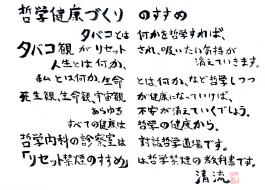 哲学健康づくり のすすめ
タバコとは 何かを哲学すれば、
タバコ観がリセット され、吸いたい気持が
消えていきます。
人生とは何か、
私とは何か、生命 とは、何か、など哲学しつつ
死生観、生命観、宇宙観、 が健康になっていけば、
あらゆる 不安が消えていくでしょう。
すべての健康は 哲学の健康から。
哲学内科の診察室は 対話哲学道場です。
「リセット禁煙のすすめ」 は哲学禁煙の教科書です。
清流